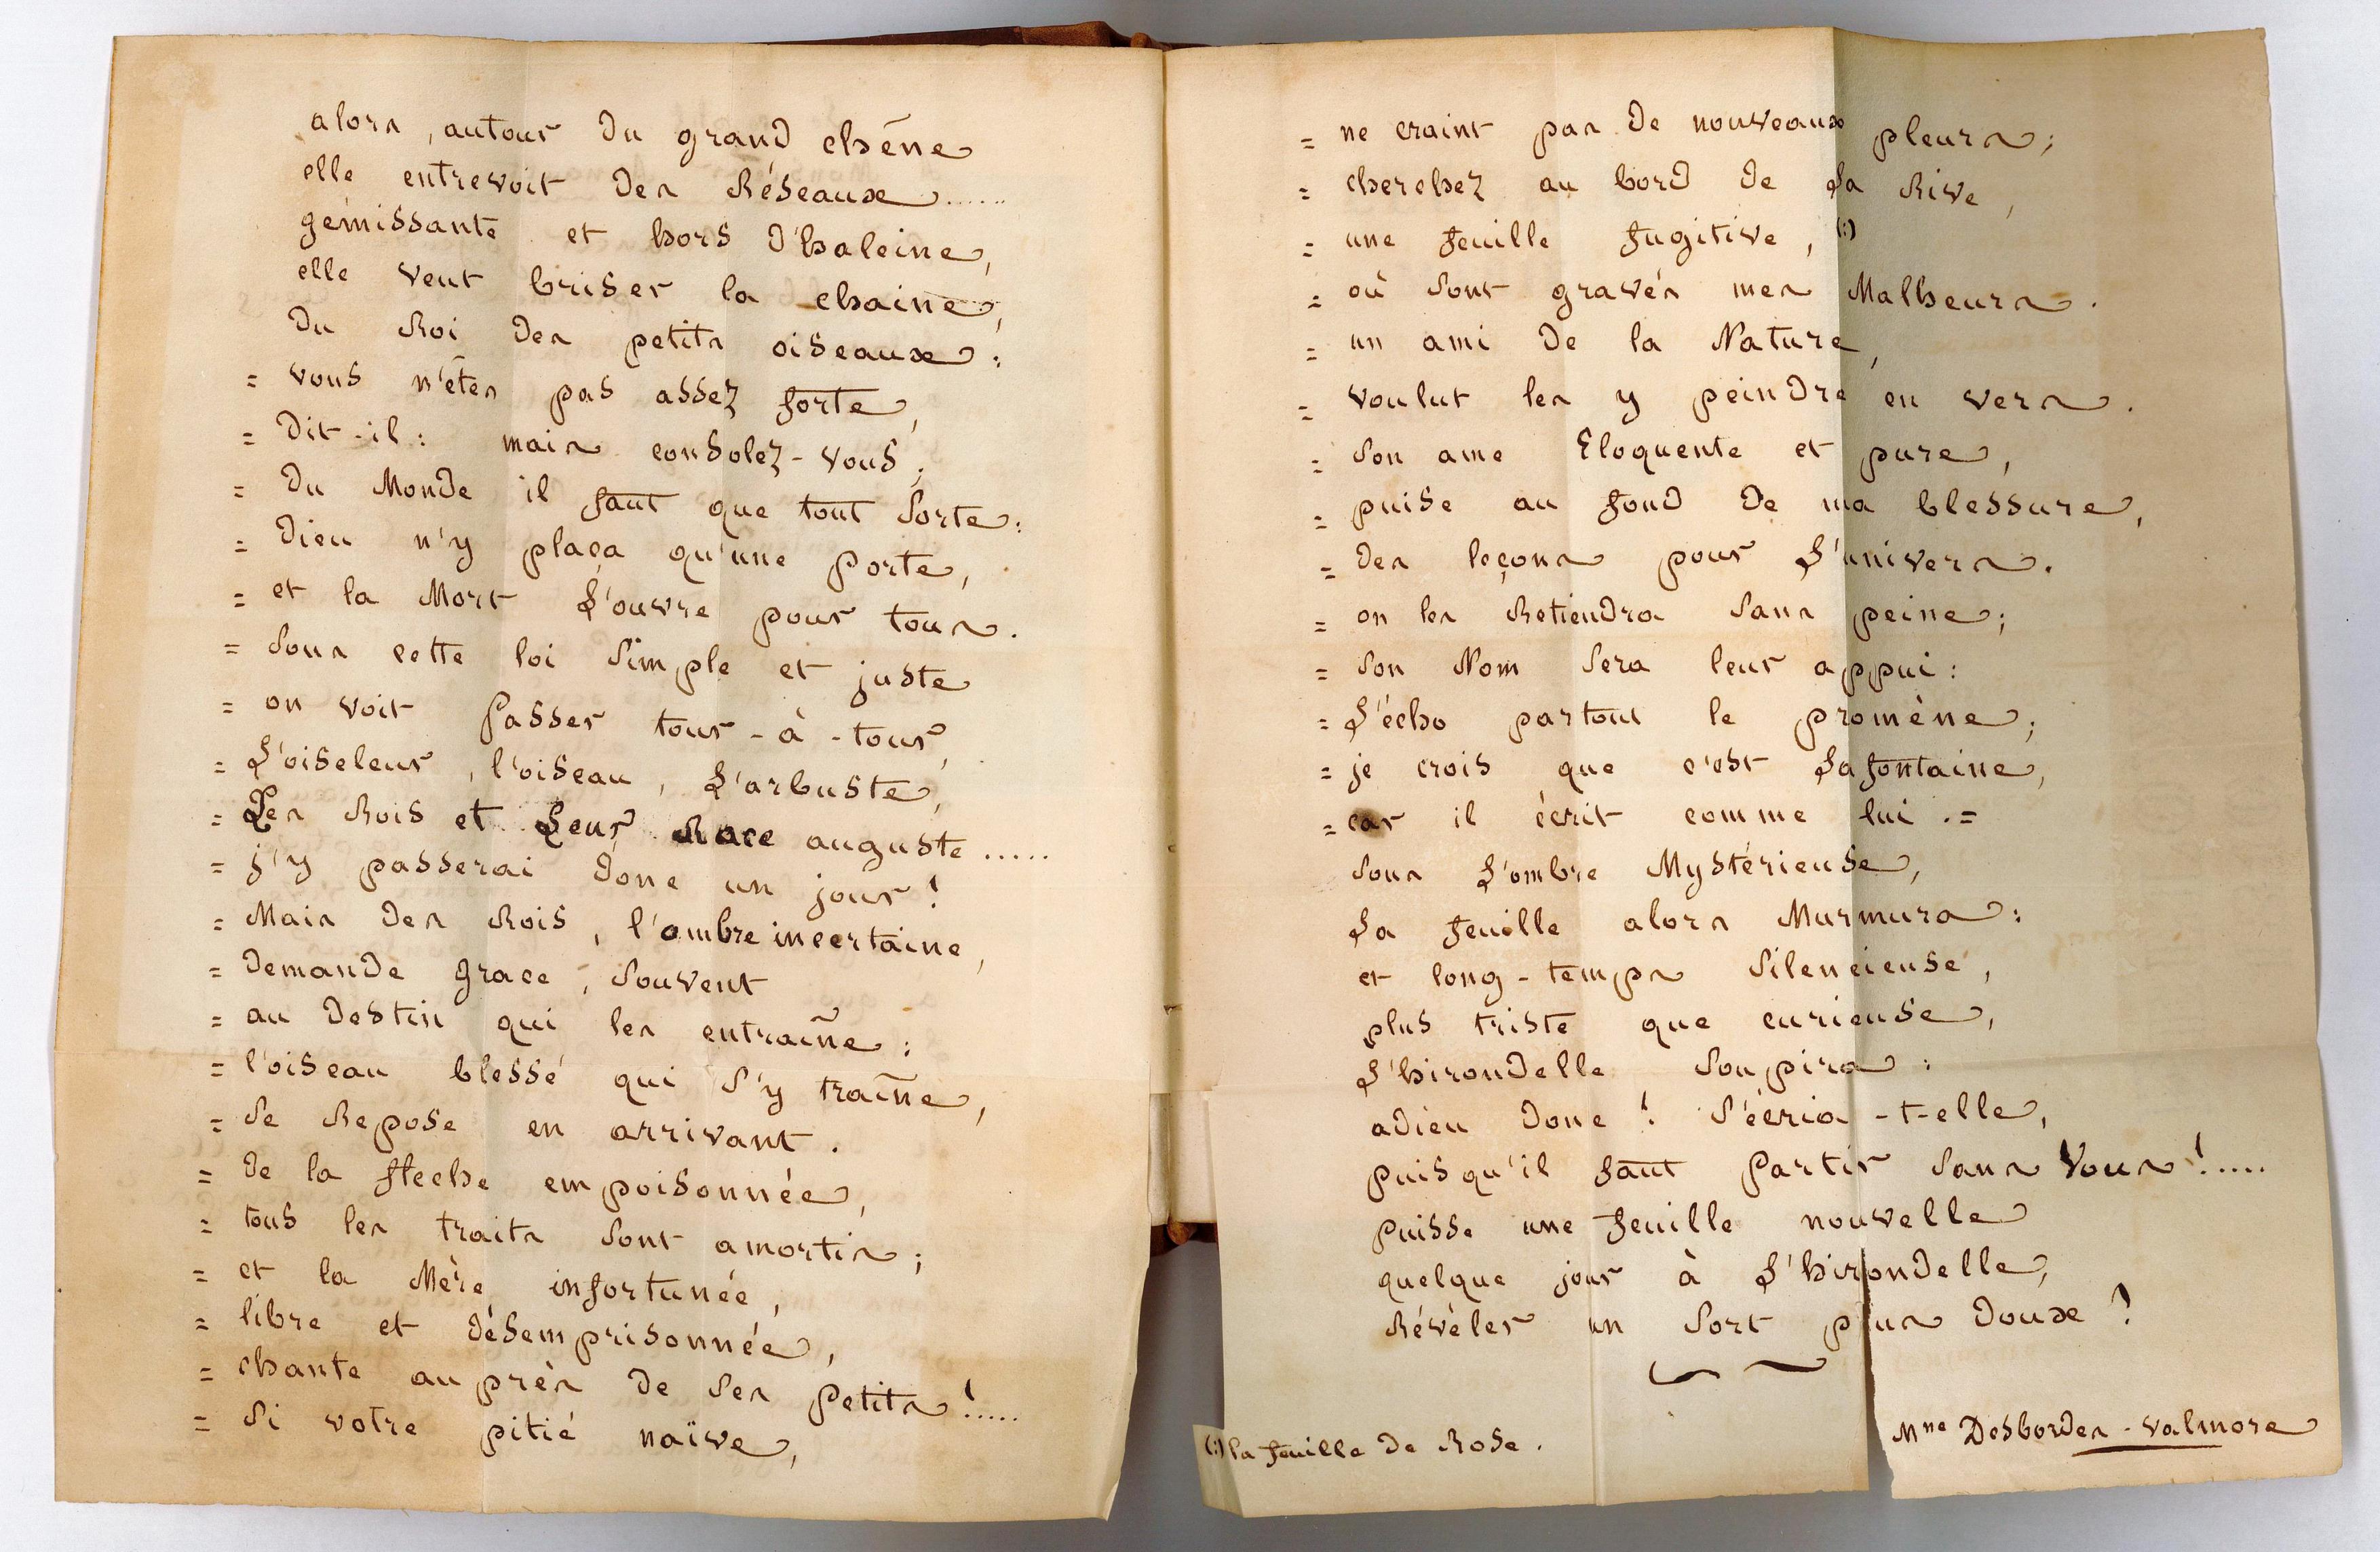 alors, autour du grand chêne
elle entrevoit des Réseaux......
gémissante et hors d'haleine,
elle veut briser la chaine,
du Roi des petits oiseaux :
= vous n'êtes pas assez forte,
= dit-il : mais consolez-vous ;
= du Monde il faut que tout sorte :
= Dieu n'y plaça qu'une porte,
= et la Mort l'ouvre pour tous.
= sous cette loi simple et juste
= on voit passer tour-à-tour,
= L'oiseleur, l'oiseau, L'arbuste,
= Les Rois et Leur Race auguste .....
= j'y passerai donc un jour !
= Mais des Rois, l'ombre incertaine,
= demande grace, souvent
= au destin qui les entraîne :
= l'oiseau blessé qui s'y traîne,
= se Repose en arrivant.
= de la fleche empoisonnée,
= tous les traits sont amortis ;
= et la Mère infortunée,
= libre et désemprisonnée,
= chante auprès de ses petits !.....
= si votre pitié naïve,
= ne craint pas de nouveaux pleurs ;
= cherchez au bord de La Rive,
= une feuille fugitive, (:)
= où sont gravés mes Malheurs.
= un ami de la Nature,
= voulut les y peindre en vers.
= son ame Eloquente et pure,
= puise au fond de ma blessure,
= des leçons pour L'univers.
= on les Retiendra sans peine ;
= son Nom sera leur appui :
= L'écho partout le promène ;
= je crois que c'est Lafontaine,
= car il écrit comme lui . =
sous L'ombre Mystérieuse,
La feuille alors Murmura :
et long-temps silencieuse,
plus triste que curieuse,
L'hirondelle soupira :
adieu donc ! s'écria-t-elle,
puisqu'il faut partir sans Vous !....
puisse une feuille nouvelle
quelque jour à L'hirondelle,
Révéler un sort plus doux ?
(:) la feuille de Rose.
Mme Desbordes-Valmore